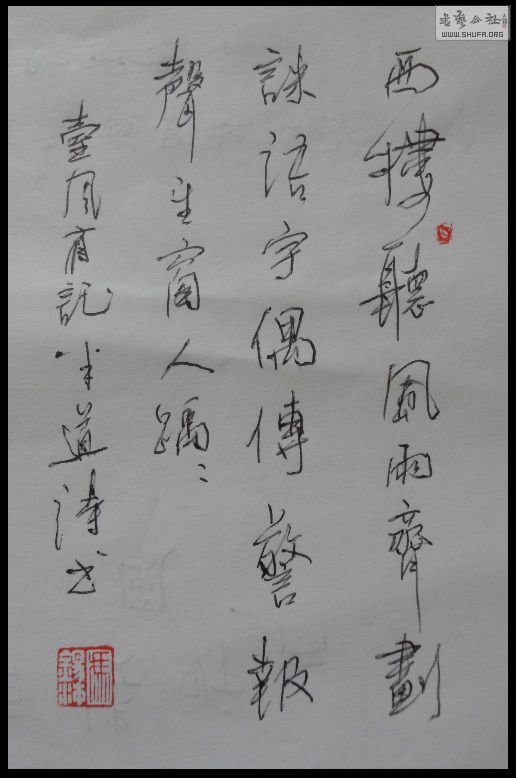 書藝公社
WWW.SHUFA.ORG
西樓聽風雨齊劃
語字偶傳警報
聲窗人踽〻
臺風有記半道濤书